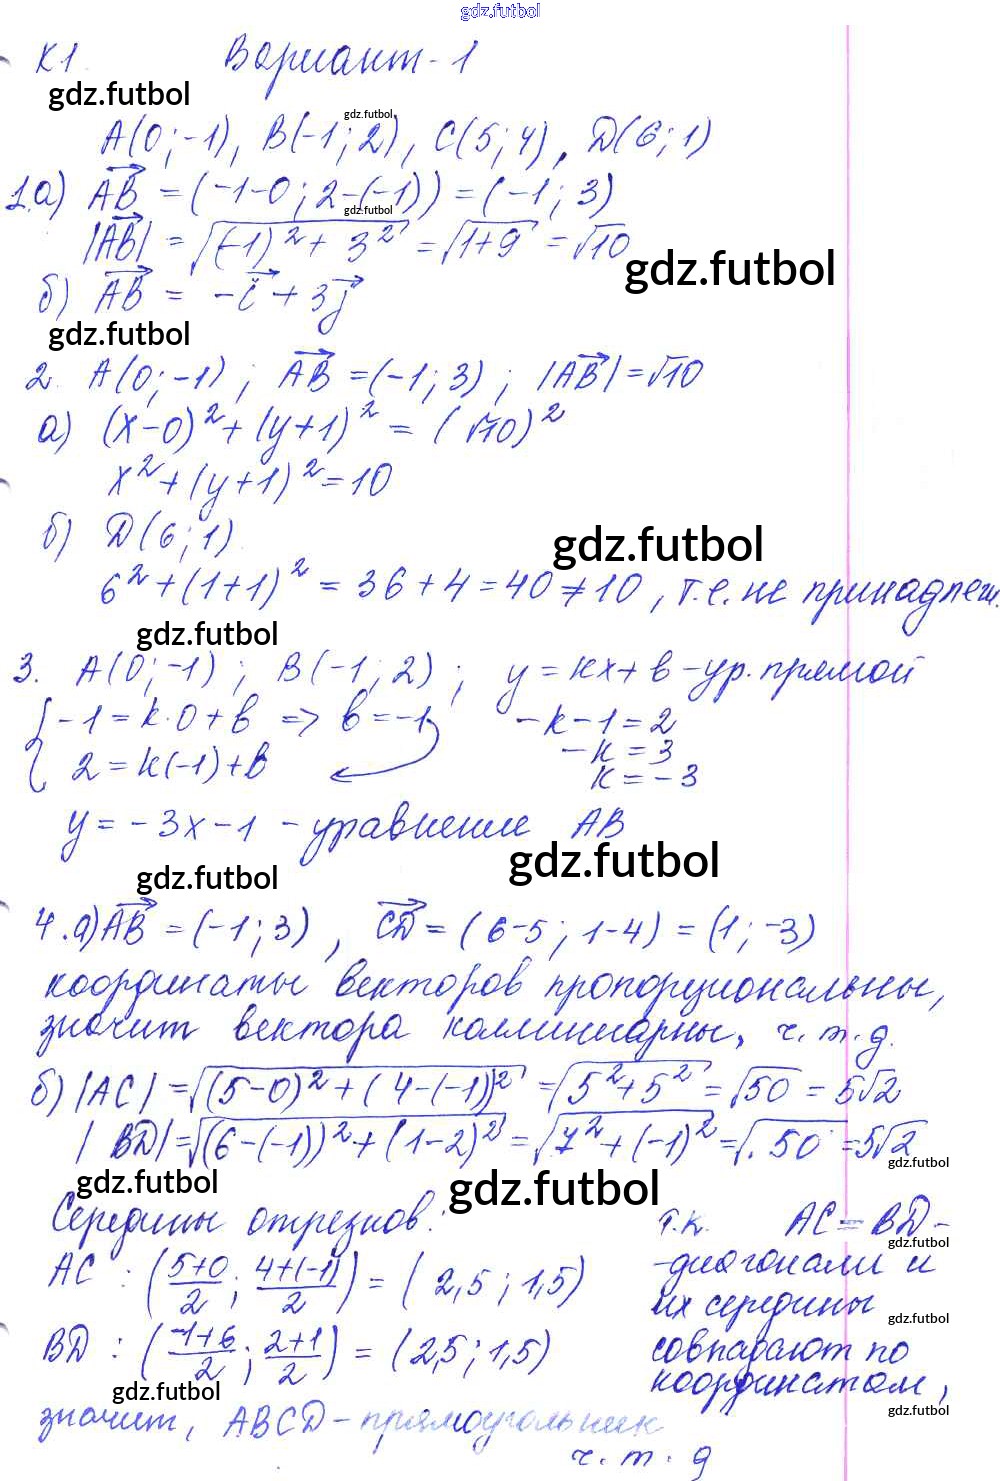 gdz.futbol
К1. Вариант-1
gdz.futbol
gdz.futbol
A(0;-1), B(-1;2), C(5;4), D(6;1)
1.а) AB = (-1-0; 2-(-1)) = (-1; 3)
gdz.futbol
|AB| = √(-1)² + 3² = √1+9 = √10
gdz.futbol
б) AB = -i + 3j
gdz.futbol
2. A(0;-1); AB = (-1; 3); |AB| = √10
а) (x-0)² + (y+1)² = (√10)²
x² + (y+1)² = 10
б) D(6;1)
gdz.futbol
6² + (1+1)² = 36 + 4 = 40 ≠ 10, т.е. не принадлеж.
gdz.futbol
3. A(0;-1); B(-1;2); y = кx + в - ур. прямой
{ -1 = k·0 + в => в = -1 -k-1 = 2
2 = k(-1) + в -k = 3
k = -3
y = -3x-1 - уравнение AB
gdz.futbol
gdz.futbol
4.а) AB = (-1; 3), CD = (6-5; 1-4) = (1; -3)
координаты векторов пропорциональны,
значит вектора коллинеарны, ч.т.д.
б) |AC| = √(5-0)² + (4-(-1))² = √5²+5² = √50 = 5√2
|BD| = √(6-(-1))² + (1-2)² = √7² + (-1)² = √50 = 5√2
gdz.futbol
gdz.futbol
gdz.futbol
Середины отрезков: т.к. AC = BD-
gdz.futbol
AC : (5+0/2; 4+(-1)/2) = (2,5; 1,5) -диагонали и
их середины
gdz.futbol
BD : (-1+6/2; 2+1/2) = (2,5; 1,5) совпадают по
координатам,
gdz.futbol
gdz.futbol
значит, ABCD - прямоугольник
ч.т.д